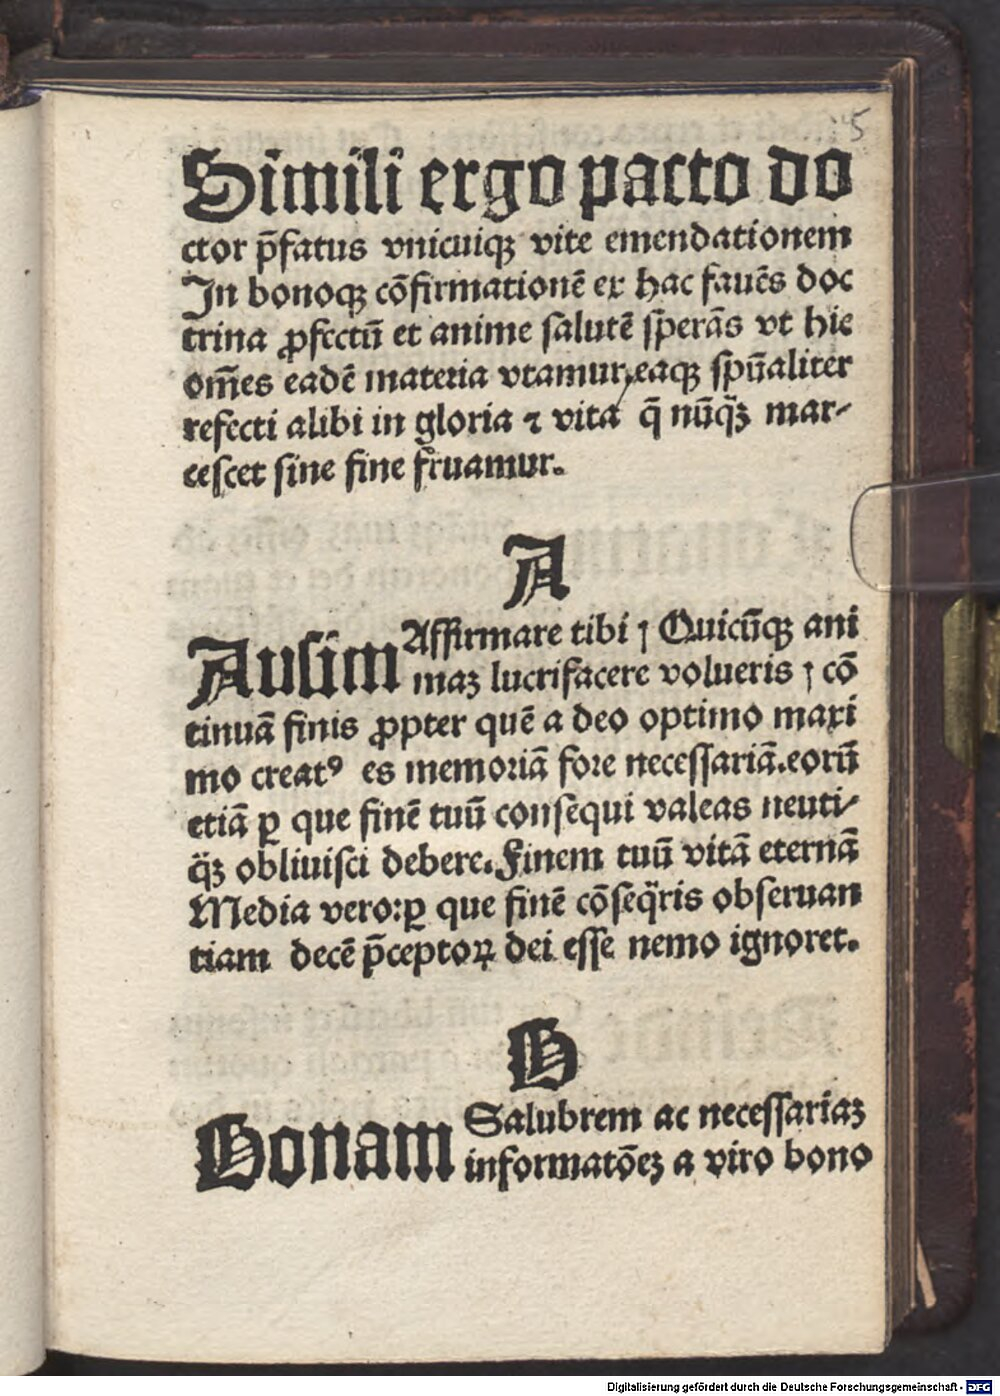 5
Simili ergo pacto do
ctor p̄fatus vnicuiqꝫ vite emendationem
In bonoqꝫ cōfirmationē ex hac fauēs doc
trina ꝓfectū et anime salutē sꝑerās vt hic
om̄es eadē materia vtamur,eaqꝫ spūaliter
refecti alibi in gloria ⁊ vita q̄ nūq̄ꝫ mar⸗
cescet sine fine fruamur.
A
Ausim Affirmare tibi ȷ Quicūqꝫ ani
maꝫ lucrifacere volueris ȷ cō
tinuā finis ꝓpter quē a deo optimo maxi
mo creatꝰ es memoriā fore necessariā.eorū
etiā ꝑ que finē tuū consequi valeas neuti⸗
q̄ꝫ obliuisci debere.Finem tuū vitā eternā
Media vero:ꝑ que finē cōseq̄ris obseruan
tiam decē p̄ceptoꝝ dei esse nemo ignoret.
B
Bonam Salubrem ac necessariaꝫ
informatōeꝫ a viro bono
Digitalisierung gefördert durch die Deutsche Forschungsgemeinschaft - DFG